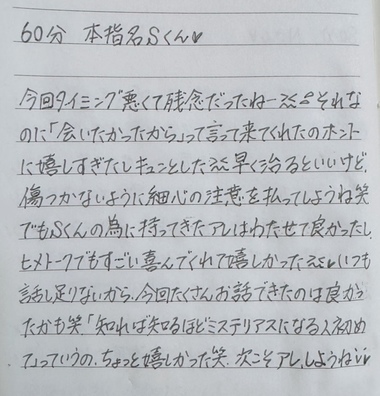 60分 本指名Sくん♥
今回タイミング悪くて残念だったねー それな
のに「会いたかったから」って言って来てくれたのホント
に嬉しすぎたしキュンとした 早く治るといいけど、
傷つかないように細心の注意を払ってしようね笑
でもSくんの為に持ってきたアレはわたせて良かったし、
ヒメトークでもすごい喜んでくれて嬉しかった いつも
話し足りないから、今回たくさんお話できたのは良かっ
たかも笑「知れば知るほどミステリアスになる人初め
て」っていうの、ちょっと嬉しかった笑、次こそアレ、しようね